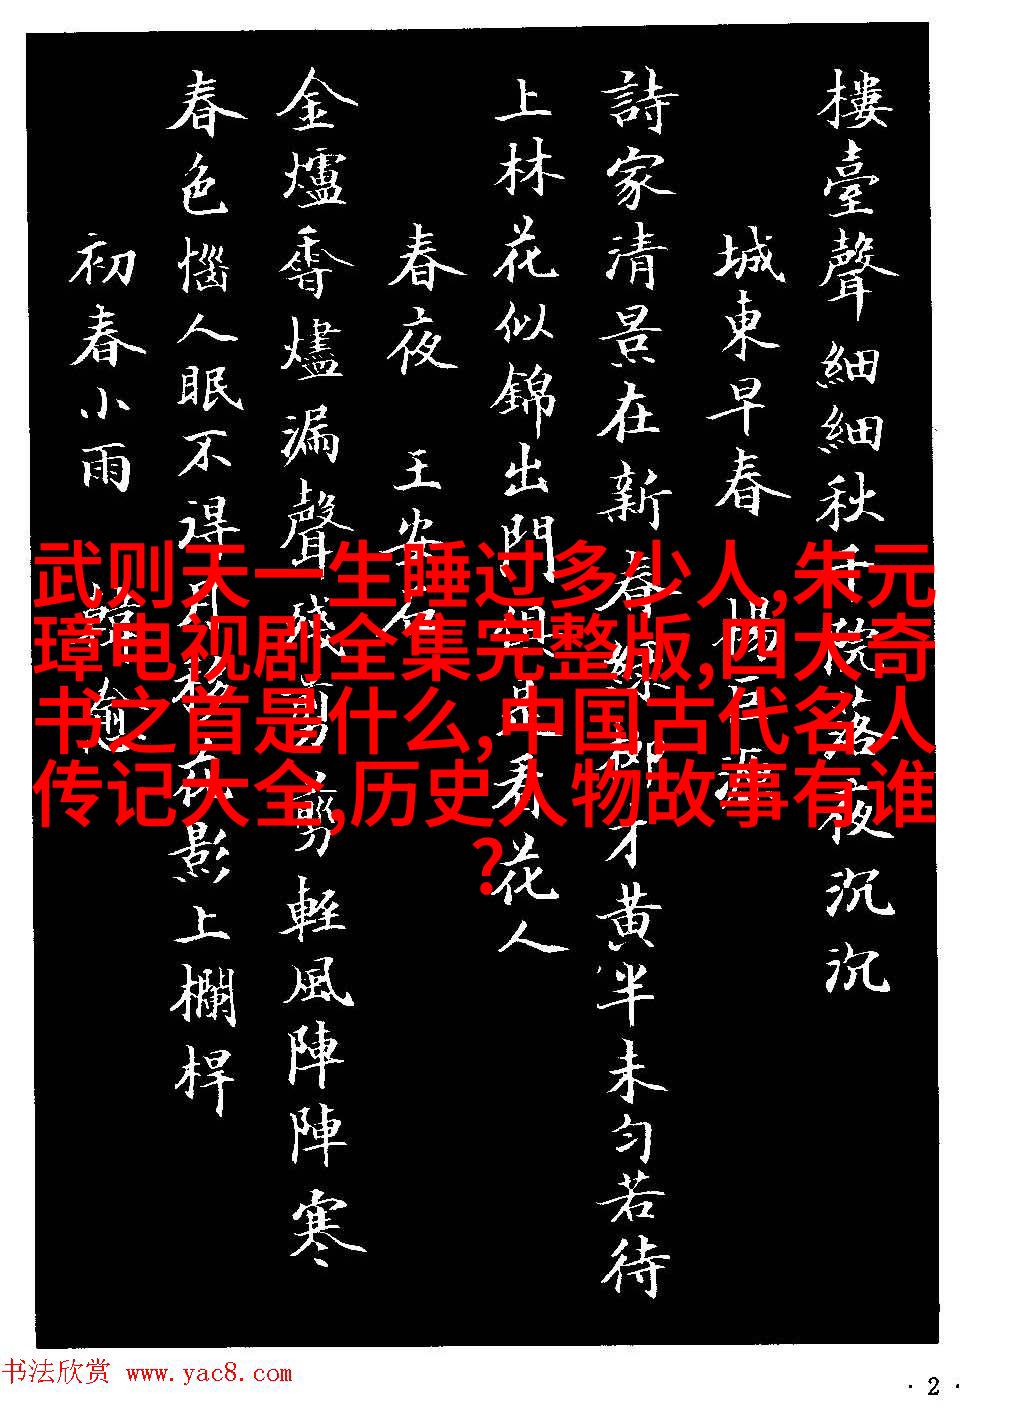 樓臺聲細細秋千院落夜沉沉
城東早春 楊巨源
詩家清景在新春綠柳才黃半未勻若待
上林花似錦出門俱是看花人
春夜 王安石
金爐香燼漏聲殘剪剪輕風陣陣寒
春色惱人眠不得月移花影上欄桿
初春小雨 韓愈
武则天一生睡过多少人,朱元
璋电视剧全集完整版,四大奇
书之首是什么,中国古代名人
传记大全,历史人物故事有谁
?
书法欣赏 www.yac8.com
· 2 ·